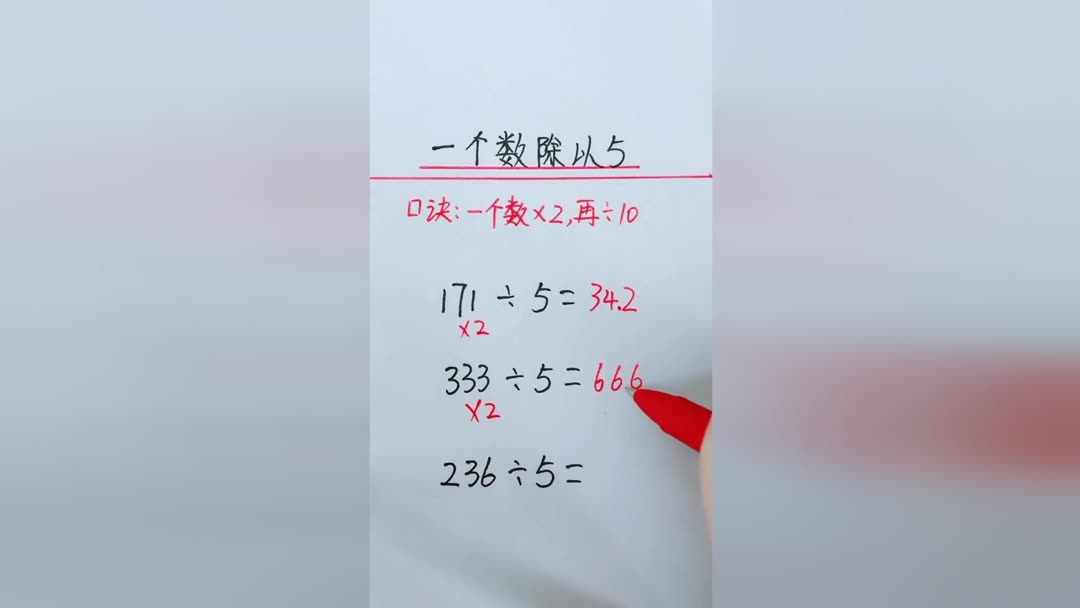 一个数除以5
口诀:一个数×2,再÷10
171÷5=34.2
×2
333÷5=666
×2
236÷5=